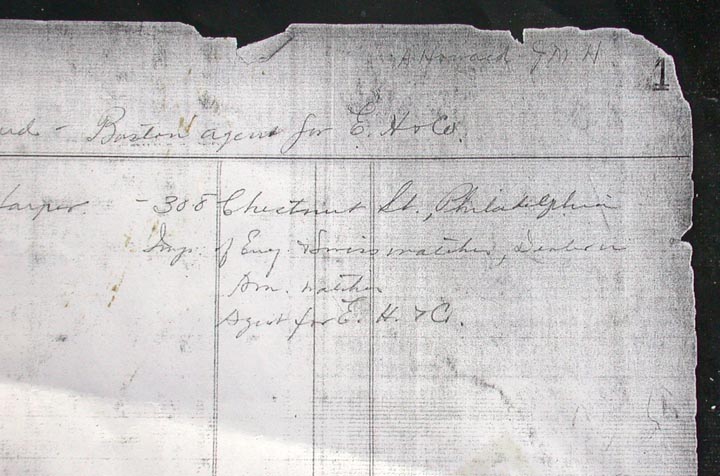 A Howard & M H
1
Boston agent for E. H & Co.
Harper. - 308 Chestnut St., Philadelphia
Imp. of Eng & Swiss watches, Dealer in
Am. watches
Agent for E. H. & Co.